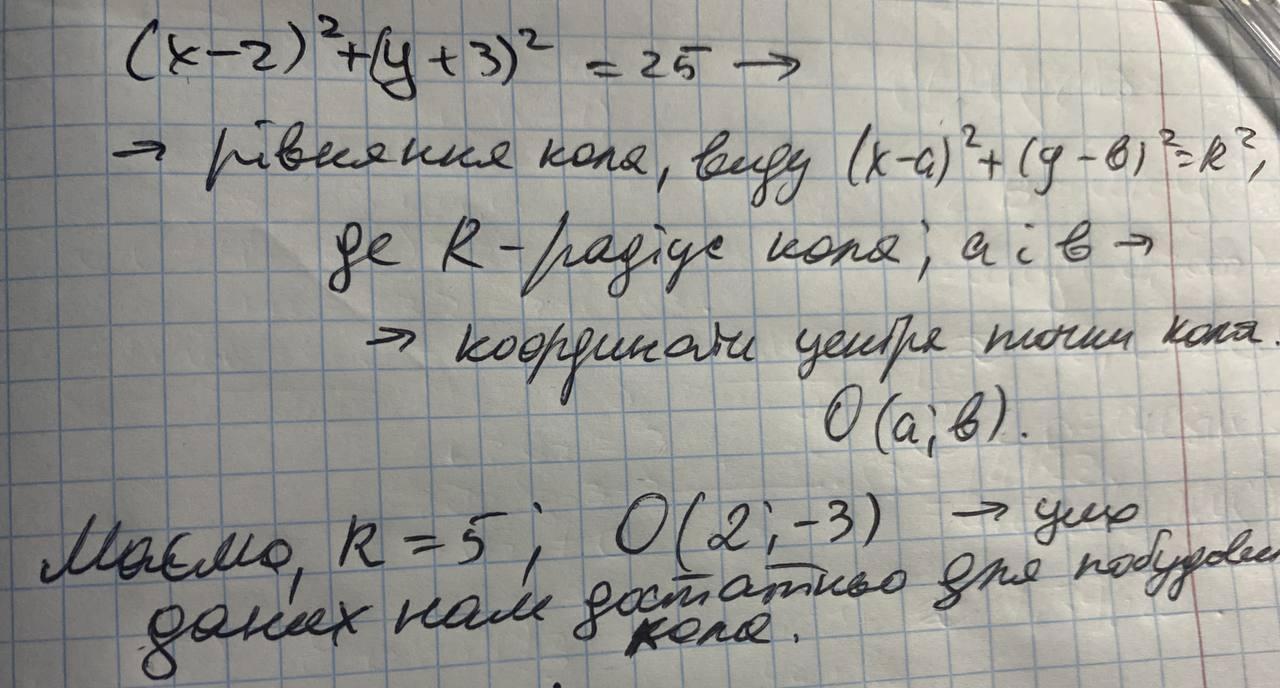 (x-2)²+(y+3)² = 25 →
→ рівняння кола, виду (x-a)²+(y-b)²=R²,
де R - радіус кола; a i b →
→ координати центра точки кола.
O(a;b).
Маємо, R = 5; O(2;-3) → цих
даних нам достатньо для побудови
кола.